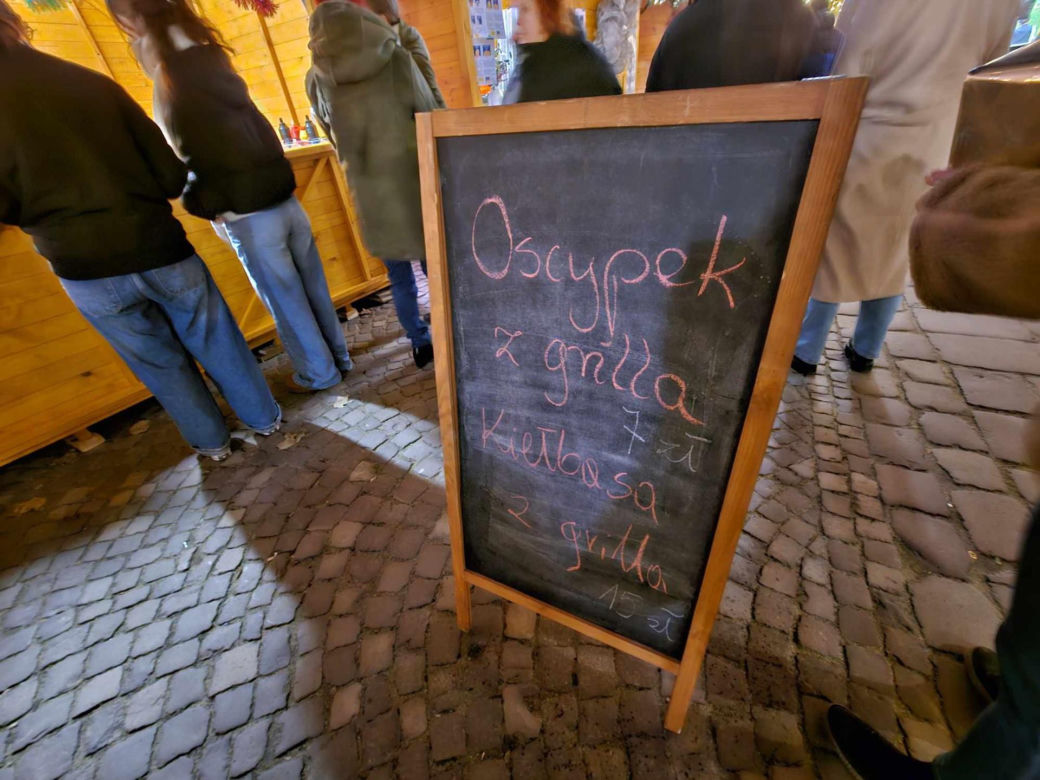 Oscypek
z grilla
7 zł
Kiełbasa
z grilla
15 zł